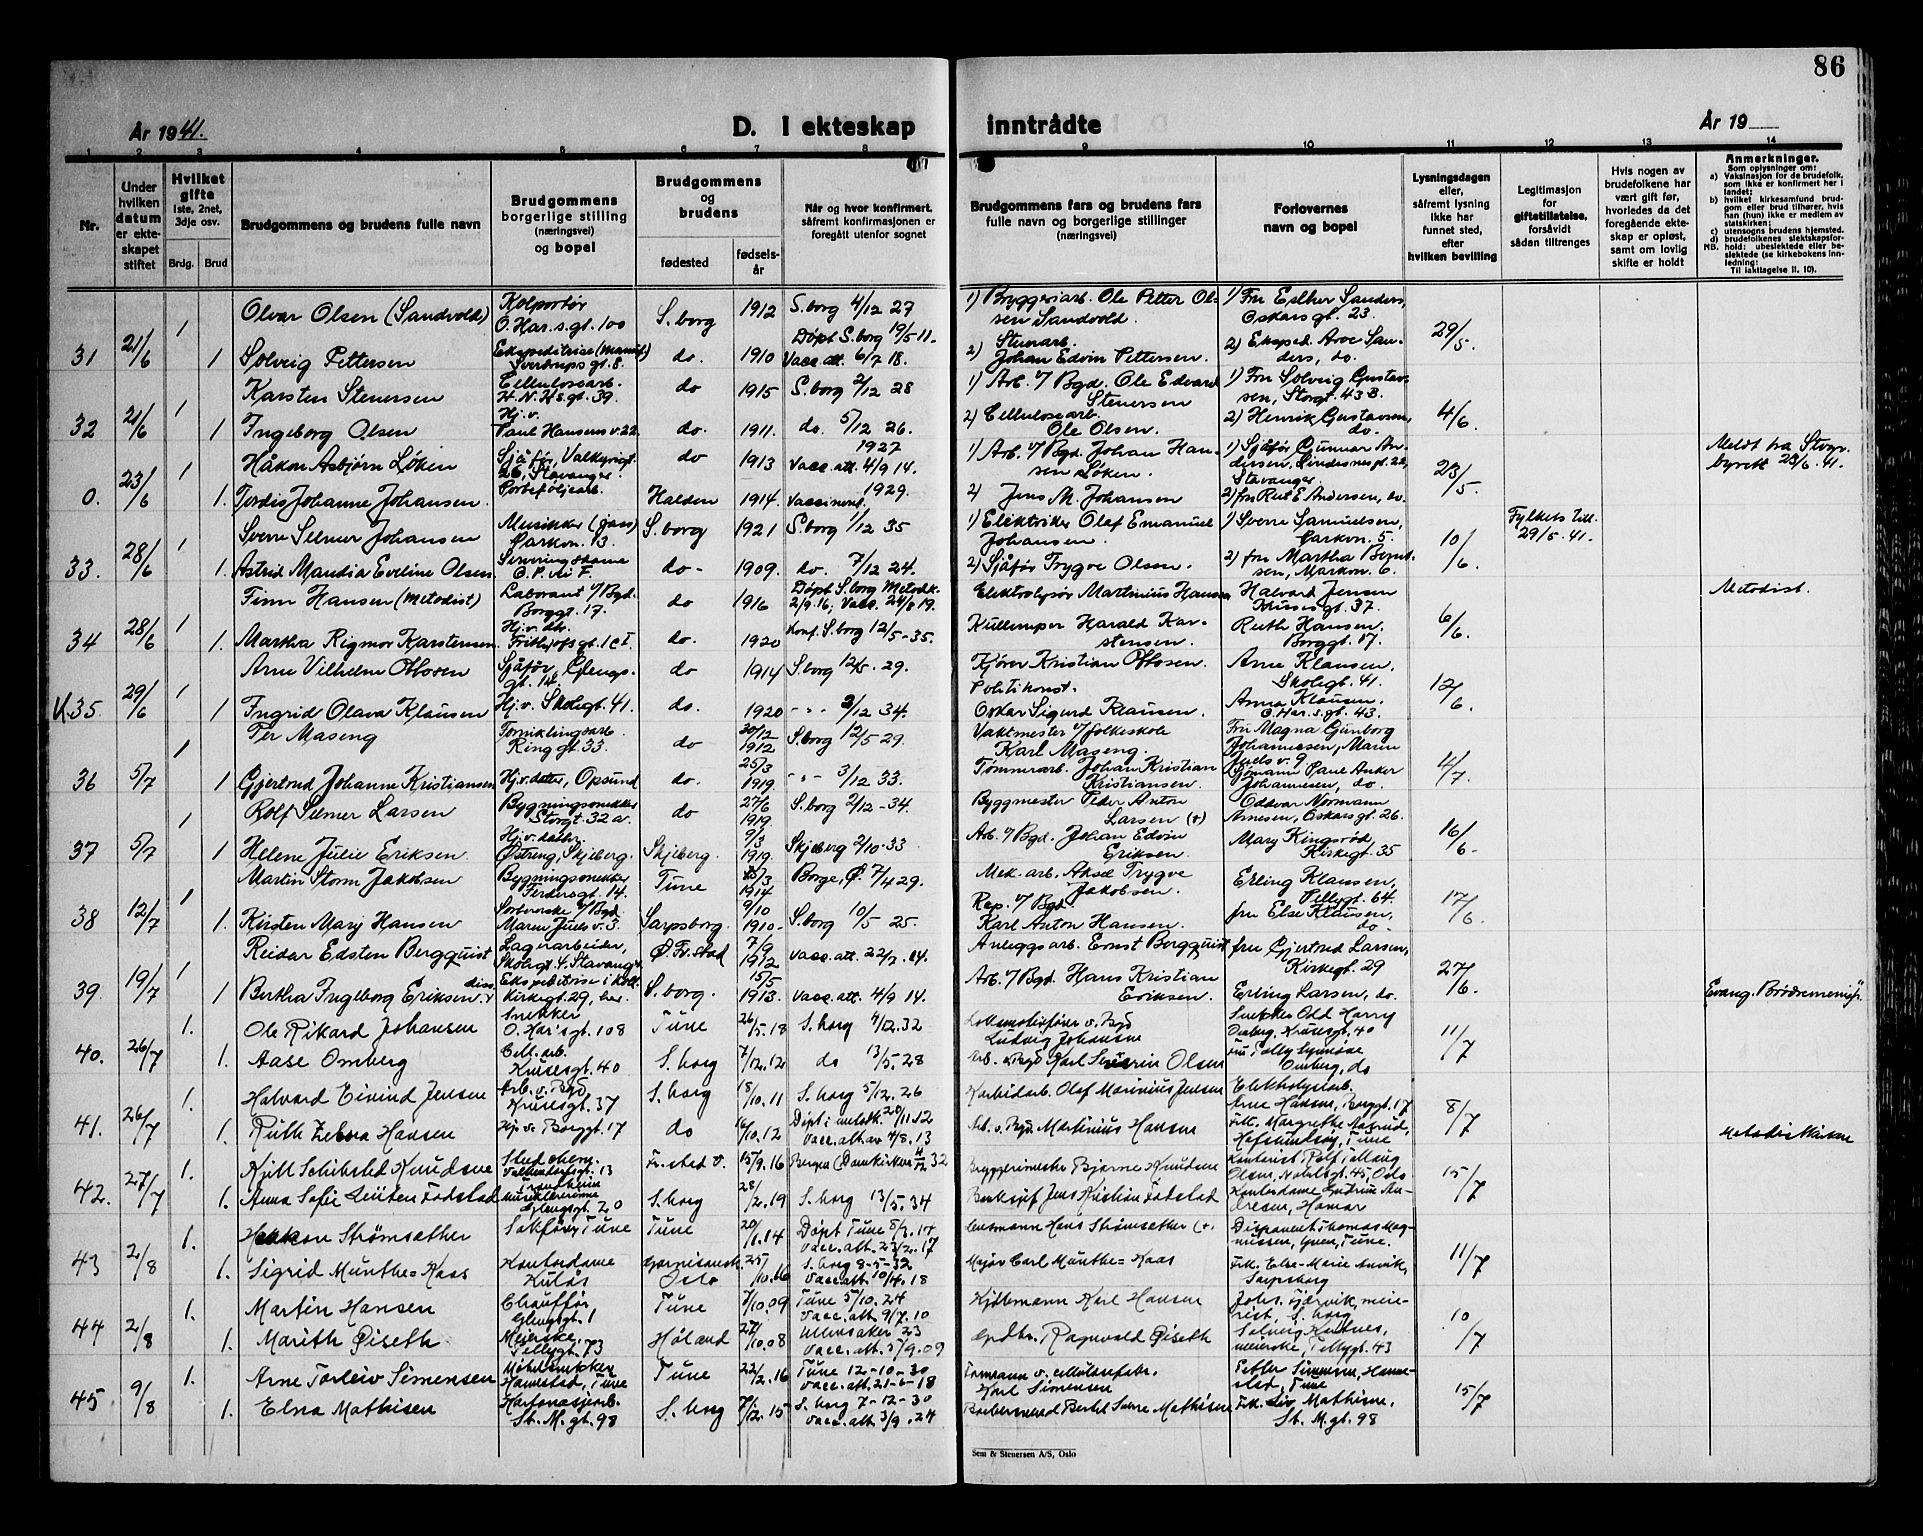 86
År 1941.
D. I ekteskap inntrådte
År 19
1 2 3 4 5 6 7 8 9 10 11 12 13 14
Nr.
Under hvilken datum er ekteskapet stiftet
Hvilket gifte
1ste, 2net, 3dje osv.
Brdg. Brud
Brudgommens og brudens fulle navn
Brudgommens borgerlige stilling (næringsvei) og bopel
Brudgommens og brudens
fødested
fødselsår
Når og hvor konfirmert, såfremt konfirmasjonen er foregått utenfor sognet
Brudgommens fars og brudens fars fulle navn og borgerlige stillinger (næringsvei)
Forlovernes navn og bopel
Lysningsdagen eller, såfremt lysning ikke har funnet sted, efter hvilken bevilling
Legitimasjon for giftetillatelse, forsåvidt sådan tiltrenges
Hvis nogen av brudefolkene har vært gift før, hvorledes da det foregående ekteskap er opløst, samt om lovlig skifte er holdt
Anmerkninger.
Som oplysninger om:
a) Vaksinasjon for de brudefolk, som ikke er konfirmert her i landet;
b) hvilket kirkesamfund brudgom eller brud tilhører, hvis han (hun) ikke er medlem av statskirken;
c) utensogns brudens hjemsted.
d) brudefolkenes slektskapsforhold: ubeslektede eller beslektede (se kirkebokens innledning:
NB. Til iakttagelse II. 10).
Olvar Olsen (Sandvold) Kolportør O. Har.s.gt. 100 S.borg 1912 S.borg 4/12 27 1) Bryggeriarb. Ole Petter Olsen Sandvold. 1) Fru Esther Sanders, Oskarsgt. 23.
31 21/6 1 1 Solveig Pettersen Ekspeditrise (Manuf) Sverdrupsgt. 8. do. 1910 Døpt S.borg 19/5 11. Vacc. att. 6/7 18. 2) Stenarb. Johan Edvin Pettersen. 2) Eksped. Arve Sanders, do. 29/5.
Karsten Stenersen Cellulosearb. H.N.H.s.gt. 39. do 1915 S.borg 2/12 28 1) Arb. v/ Bgd. Ole Edvard Stenersen 1) Fru Solveig Gustavsen, Storgt. 43 B.
32 21/6 1 1 Ingeborg Olsen Hj.v. Paul Hansens v. 22. do. 1911. do. 5/12 26. 2) Cellulosearb. Ole Olsen. 2) Henrik Gustavsen, do. 4/6.
Håkon Asbjørn Løken Sjåfør, Valkyriegt. 26, Stavanger. do 1913 1927 Vacc. att. 4/9 14. 1) Arb. v/ Bgd. Johan Hansen Løken. 1) Sjåfør Gunnar Andersen, Lindesnesgt. 22, Stavanger. Meldt fra Stvgr. byrett 28/6. 41.
0. 23/6 1 1. Tordis Johanne Johansen. Halden 1914. 1929. 2) Jens M. Johansen 2) fru Rut E. Andersen, do. 23/5
Sverre Selmer Johansen Musikker (jass) Parkvn. 13. S.borg 1921 S.borg 1/12 35 1) Elektriker Olaf Emanuel Johansen. 1) Sverre Samuelsen, Parkvn. 5. Fylkets till. 29/5. 41.
33. 28/6 1 1. Astrid Mandia Eveline Olsen. Serveringsdame do. 1909. do. 7/12 24. 2) Sjåfør Trygve Olsen. 2) fru Martha Berntsen, Markvn. 6. 10/6
Finn Hansen (Metodist) Laborant v/ Bgd. Borggt. 17. do 1916 Døpt S.borg Metodk. 2/9. 16; Vacc. 24/8 19. Elektrolysør Martinius Hansen Halvard Jensen Krusesgt. 37. Metodist.
34 28/6 1 1. Martha Rigmor Karstensen. Hj.v. dtr. Fritjofsgt. 1 c I do. 1920 Konf. S.borg 12/5-35. Harald Karstensen. Ruth Hansen, Borggt. 17. 6/6.
Arne Vilhelm Ottosen Sjåfør, Glengsgt. 14. do 1914 S.borg 12/5. 29. Kjører Kristian Ottosen. Arne Klausen, Skolegt. 41.
35. 29/6 1 1 Ingrid Olava Klausen Hj.v. Skolegt. 41. do. 1920 -"- 2/12 34. Politikonst. Oskar Sigurd Klausen. Anna Klausen. O. Har.s.gt. 43. 12/6.
Per Maseng Ringgt. 33. do 30/12 1912 S.borg 12/5 29. Vaktmester v/ folkeskole Karl Maseng. Fru Magna Gunborg Johannesen, Maren Juels v. 9.
36 5/7 1 1 Gjertrud Johanne Kristiansen Hj.v. datter, Opsund do. 25/3 1919. -"- 3/12 33. Tømmerarb. Johan Kristian Kristiansen. Sjømann Paul Anker Johannesen, do. 4/7.
Rolf Selmer Larsen Bygningssnekker Storgt. 32 a. do 27/6 1919. S.borg 2/12-34. Byggmester Peder Anton Larsen (+) Oddvar Normann Arnesen, Oskarsgt. 26.
37 5/7 1 1 Helene Julie Eriksen. Hj.v. datter. Østreng, Skjeberg. Skjeberg. 9/3 1919. Skjeberg 2/10-33 Arb. v/ Bgd. Johan Edvin Eriksen. Mary Kingsrød, Kirkegt. 35 16/6.
Martin Storm Jakobsen Bygningssnekker Ferdersgt. 14. Tune 1914 Borge, Ø. 7/4 29. Mek. arb. Aksel Trygve Jakobsen. Erling Klausen, Pellygt. 64.
38 12/7 1 1. Kirsten Mary Hansen Maren Juels v. 3. Sarpsborg. 9/10 1910. S.borg 10/5 25. Rep. v/ Bgd. Karl Anton Hansen. fru Else Klausen, do. 17/6.
Reidar Edsten Bergquist Lagerarbeider, Skolegt. 4. Stavanger Ø. Fr.stad 7/9 1912 Vacc. att. 22/7. 14. Anleggsarb. Ernst Bergquist fru Gjertrud Larsen, Kirkegt. 29
39 19/7 1 1 Bertha Ingeborg Eriksen. diss. Kirkegt. 29, her. S.borg. 15/5 1913. Vacc. att. 4/9 14. Arb. v/ Bgd. Hans Kristian Eriksen. Erling Larsen, do. 27/6. Evang. Brødremenigh.
Ole Rikard Johansen Snekker O. Har'sgt. 108 Tune 26/5.18 S.borg 4/12.32 Lokomotivfører v. Bgd Ludvig Johansen Snekker Odd Harry Omberg, Krusesgt. 40
40. 26/7 1. 1. Aase Omberg Cell. arb. Krusesgt. 40 S.borg 7/12.12 do 13/5.28 Arb. v. Bgd Karl Severin Olsen Omberg, do 11/7
Halvard Eivind Jensen Arb. v. Bgd Krusesgt. 37 S.borg 18/10.11 S.borg 5/12.26 Karbidarb. Olaf Marinius Jensen Elektrolysearb. Arne Hansen, Borggt. 17
41. 26/7 1. 1. Ruth Zelma Hansen Hj. v. Borggt. 17 do 14/10.12 Døpt i metodk. 20/11.12 Vacc. att. av 4/8. 13 Arb. v. Bgd. Martinius Hansen Frk. Margrethe Aagrud, Hafslundsøy, Tune 8/7 Metodistkirken
Kjell Schibsted Knudsen Trondheim Fr.stad v. 15/9.16 Bergen (Domkirken 4/12 32 Bryggerimester Bjarne Knudsen Olsen, Nobelsgt. 45, Oslo
42. 27/7 1. 1. Anna Sofie Lützen Fodstad Glengsgt. 20 S.borg 28/2.19 S.borg 13/5.34 Banksjef Jens Kristian Fodstad Kontordame Gudrun Andresen, Hamar 15/7
Haakon Strømsæther Sakfører, Tune Tune 20/1.14 Døpt Tune 8/3.14 Vacc. att. 23/2.17 Lensmann Hans Strømsæther (+. Disponent Thomas Magnussen, Tune.
43 2/8 1. 1. Sigrid Munthe=Kaas Kontordame Kulås Garnisonsk. Oslo 25/10.06 S.borg 8-5-32 Vacc. att. 10/4.18 Major Carl Munthe=Kaas Frk. Else-Marie Anvik, Sarpsborg 11/7
Martin Hansen Chauffør Glengsgt. 1 Tune 7/10.09 Tune 5/10.24 Vacc. att. 9/7.10 Kjøttmann Karl Hansen Johs. Fjærvik, meierist, S.borg
44 2/8 1. 1. Marith Giseth Meierske, Pellygt. 73 Høland 27/10.08 Ullensaker 23 Vacc. att. 3/9.09 Grdbr. Ragnvald Giseth Solveig Kutnes, meierske, Pellygt. 43 10/7
Arne Torleiv Simensen Møbelsnekker Hannestad, Tune Tune 22/2.16 Tune 12-10-30 Vacc. att. 21-6-18 Formann v. cellulosefabr. Karl Simensen Petter Simensen, Hannestad, Tune
45 9/8 1. 1. Elna Mathisen Kartonasjearb. St. M. gt. 98 S.borg 7/12.15 S.borg 7-12-30 Vacc. att. 3/9.24 Bertel Sverre Mathisen Frk. Liv Mathisen, St. M. gt. 98 15/7
Sem & Stenersen A/S, Oslo